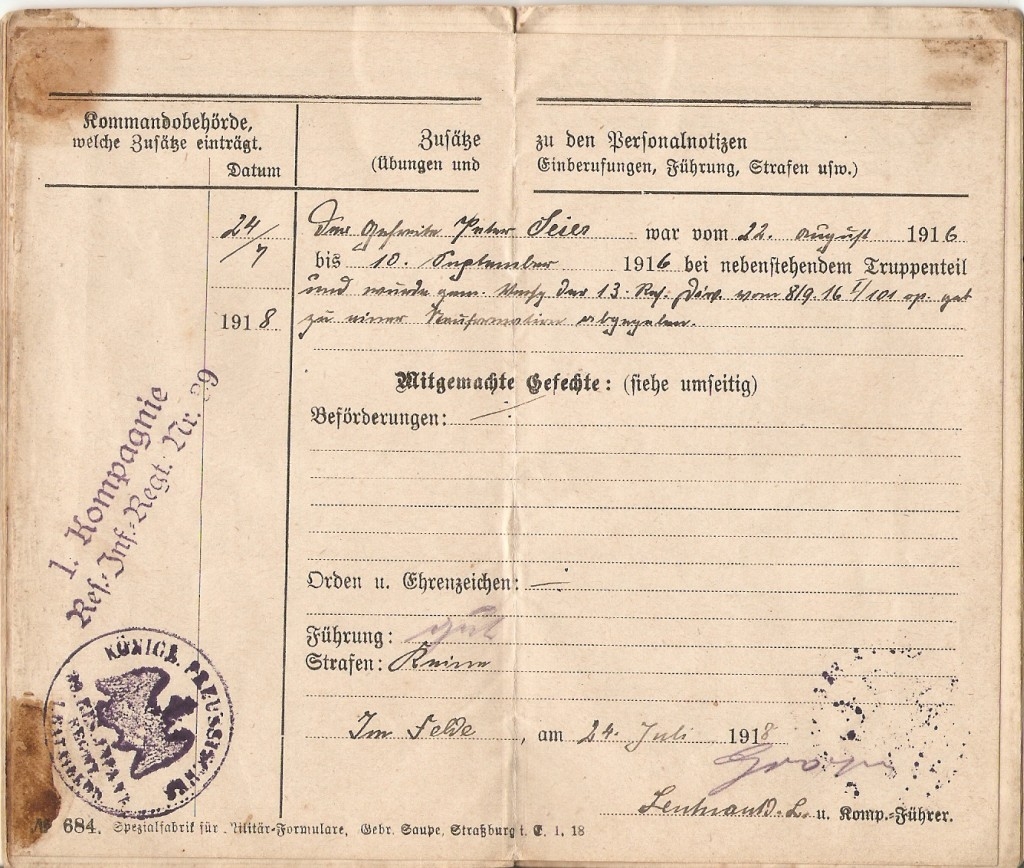 Kommandobehörde,
welche Zusätze einträgt.
Datum
Zusätze zu den Personalnotizen
(Übungen und Einberufungen, Führung, Strafen usw.)
24/7
1918
Der Gefreite Peter Seies war vom 22. August 1916
bis 10. September 1916 bei nebenstehendem Truppenteil
und wurde gem. Verfg der 13. Res. Div. vom 8/9.16 I/101 op. geh
zu einer Neuformation abgegeben.
Mitgemachte Gefechte: (siehe umseitig)
Beförderungen: —
Orden u. Ehrenzeichen: —
Führung: gut
Strafen: Keine
Im Felde, am 24. Juli 1918
Leutnant d. L. u. Komp.-Führer.
1. Kompagnie
Res.-Inf.-Regt. Nr. 39
KÖNIGL. PREUSSISCHES
39. RES. INFANT.
REGIMENT
I. BATAILLON
№ 684. Spezialfabrik für Militär-Formulare, Gebr. Saupe, Straßburg i. E. 1. 18